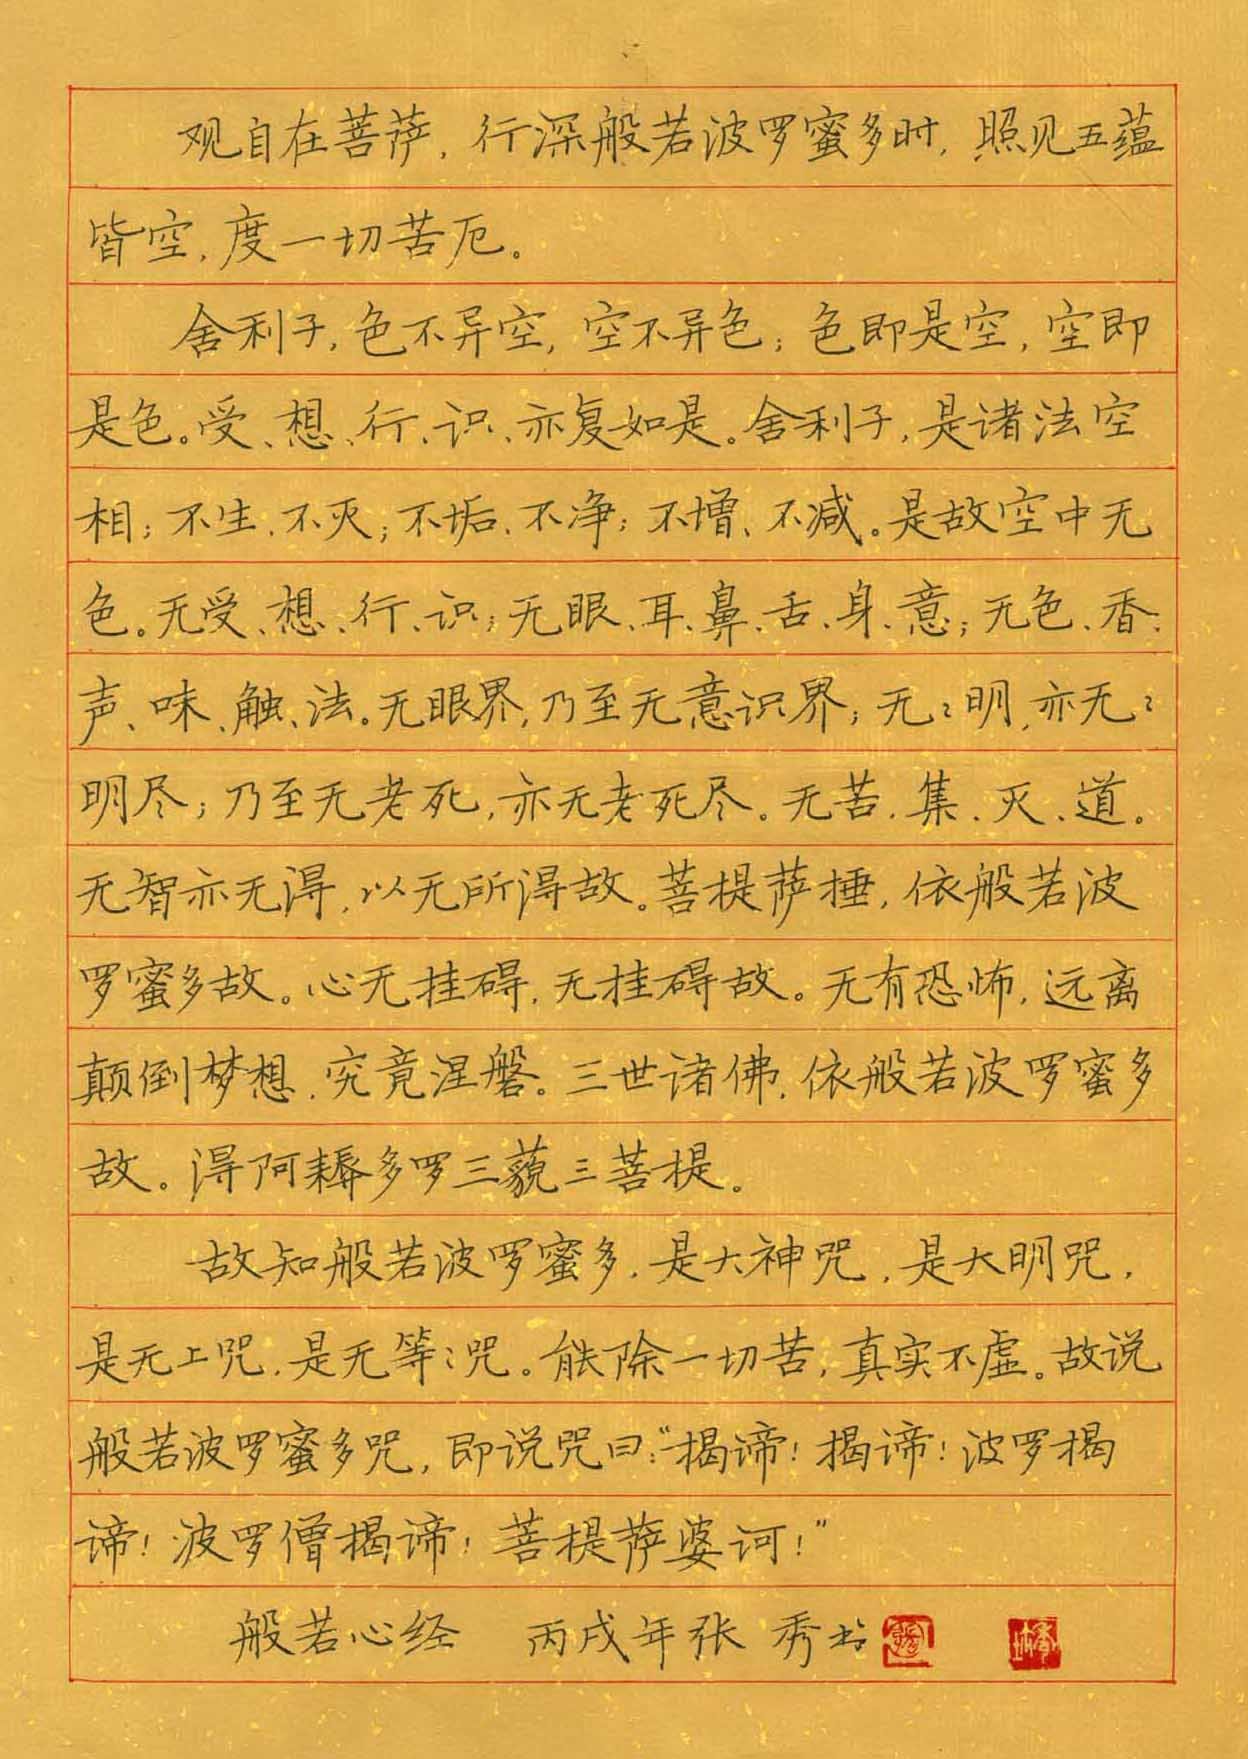 观自在菩萨，行深般若波罗蜜多时，照见五蕴
皆空，度一切苦厄。
舍利子，色不异空，空不异色；色即是空，空即
是色。受、想、行、识、亦复如是。舍利子，是诸法空
相；不生、不灭；不垢、不净；不增、不减。是故空中无
色。无受、想、行、识；无眼、耳、鼻、舌、身、意；无色、香、
声、味、触、法。无眼界，乃至无意识界；无〻明，亦无〻
明尽；乃至无老死，亦无老死尽。无苦、集、灭、道。
无智亦无得，以无所得故。菩提萨捶，依般若波
罗蜜多故。心无挂碍，无挂碍故。无有恐怖，远离
颠倒梦想，究竟涅磐。三世诸佛，依般若波罗蜜多
故。得阿耨多罗三藐三菩提。
故知般若波罗蜜多，是大神咒，是大明咒，
是无上咒，是无等〻咒。能除一切苦，真实不虚。故说
般若波罗蜜多咒，即说咒曰：“揭谛！揭谛！波罗揭
谛！波罗僧揭谛！菩提萨婆诃！”
般若心经 丙戌年张秀书